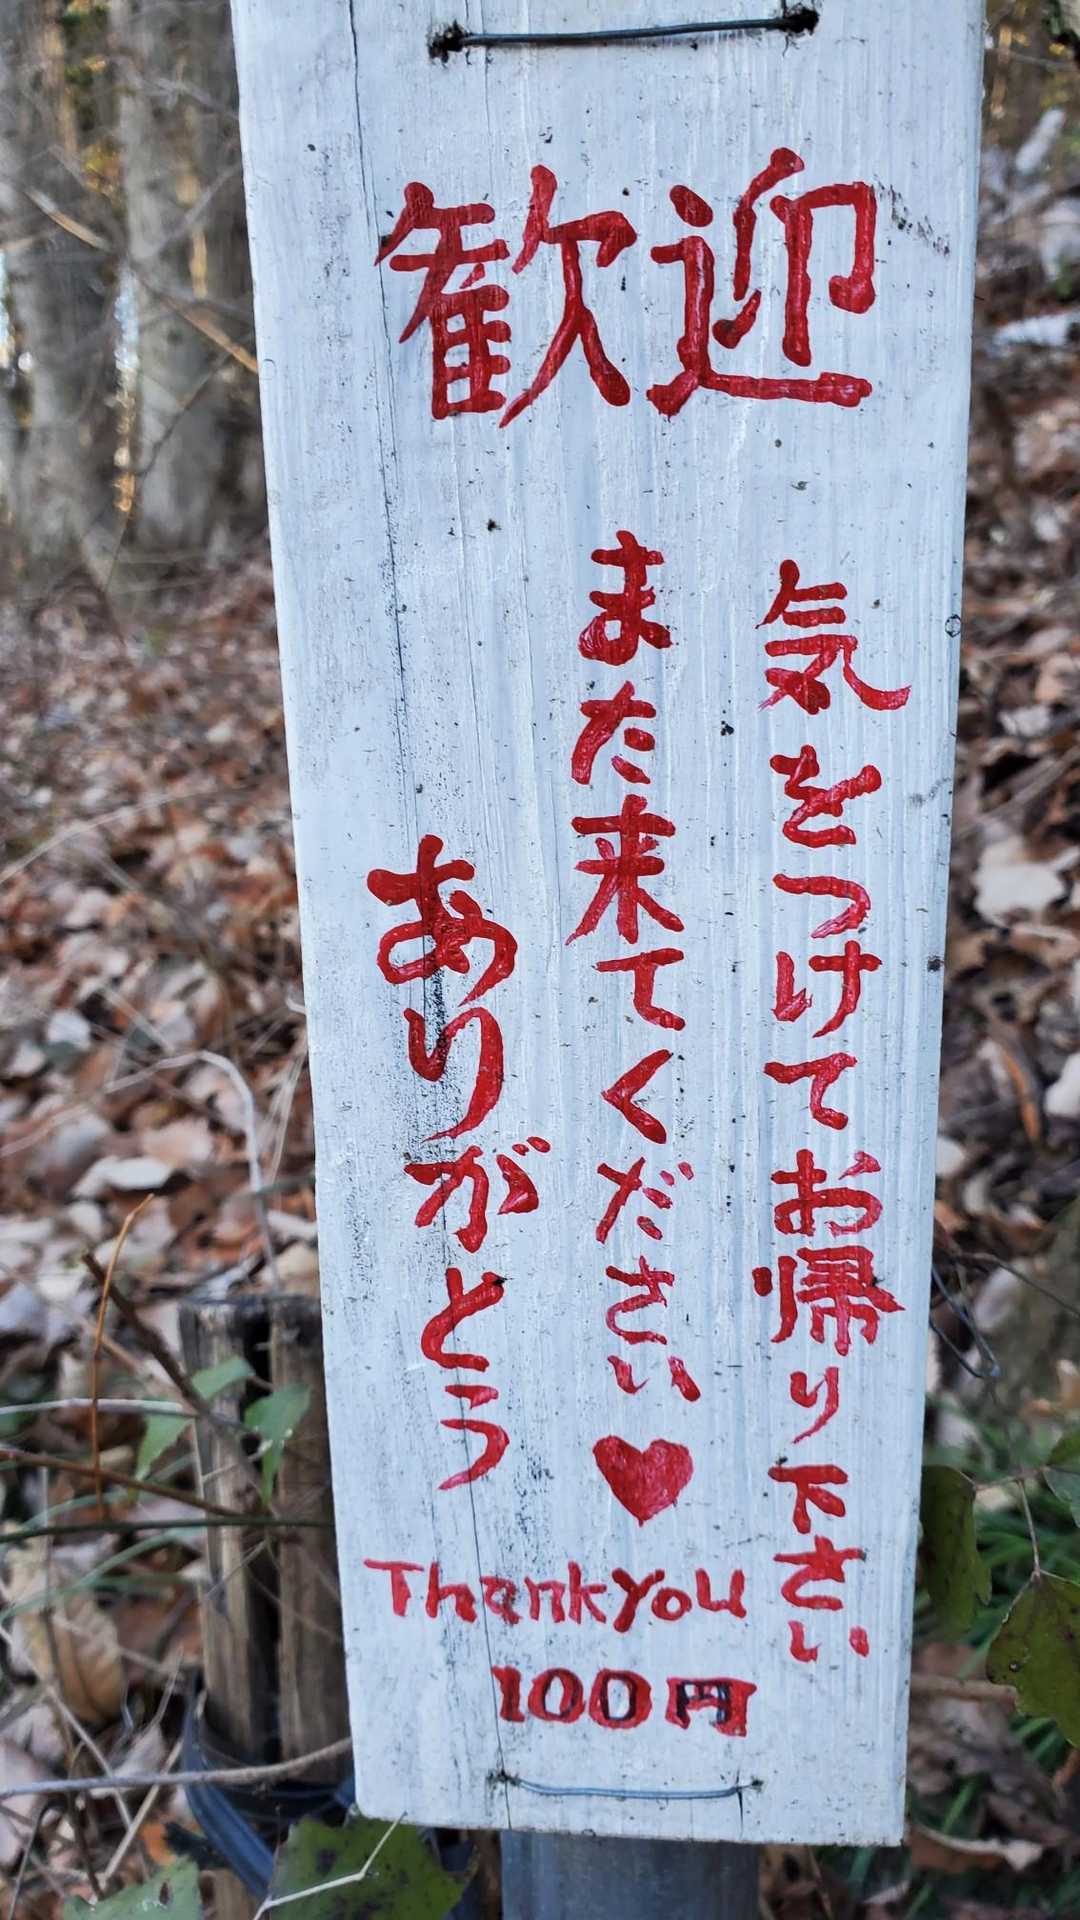 歓迎
気をつけてお帰り下さい
また来てください♥
ありがとう
Thankyou
100円